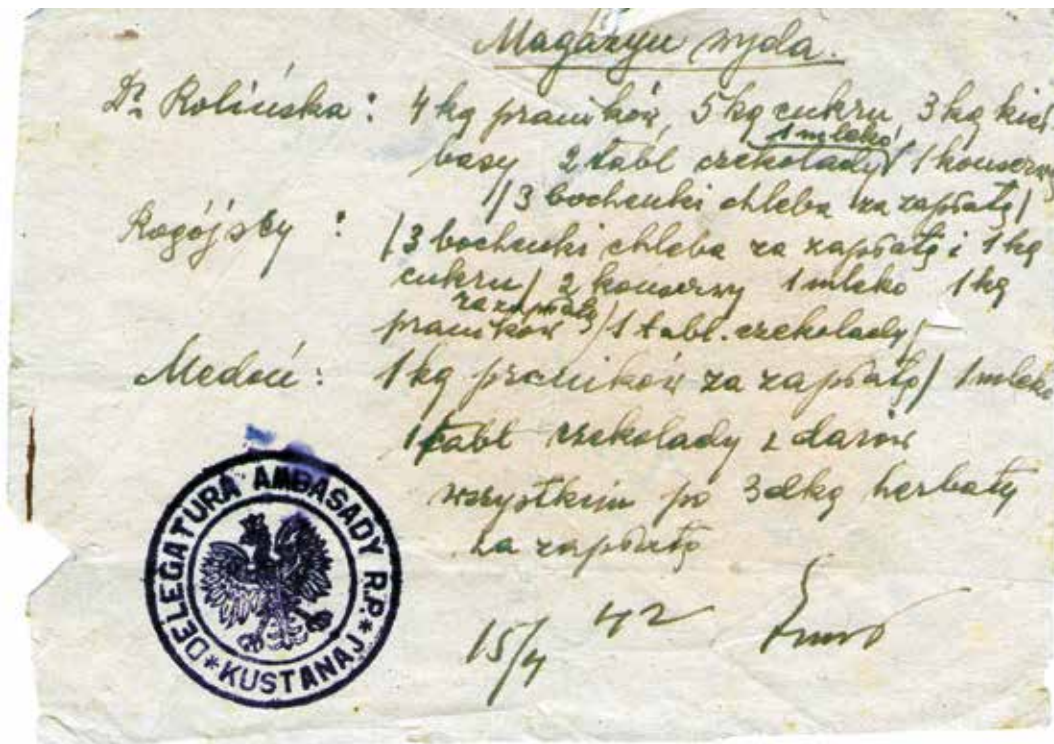 Magazyn wyda.
Dr Rolińska: 4 kg pierników, 5 kg cukru, 3 kg kieł
1 mleko
basy 2 tabl czekolady 1 konserwę
/3 bochenki chleba za zapłatą/
Rogójscy: /3 bochenki chleba za zapłatą i 1 kg
cukru/ 2 konserwy 1 mleko 1 kg
za zapłatą
pierników /1 tabl. czekolady/
Medoń: 1 kg pierników za zapłatą/ 1 mleko
1 tabl czekolady z darów
wszystkim po 3 dkg herbaty
za zapłatą
15/4 42
DELEGATURA AMBASADY R.P. * KUSTANAJ *